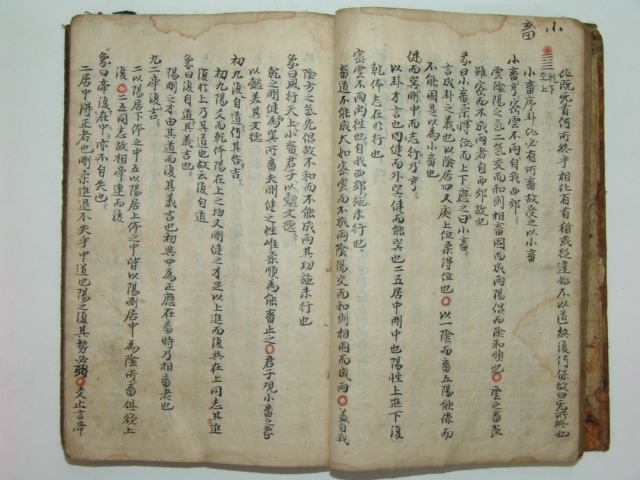 小畜
比既无首何所終乎相比有首猶或終違始不以道終復何保故曰无所終也
䷈ 乾下巽上
小畜序卦比必有所畜故受之以小畜
小畜亨密雲不雨自我西郊
雲陰陽之氣二氣交而和則相畜固而成雨陽倡而陰和順也○雲之畜聚
雖密而不成雨者自西郊故也
彖曰小畜柔得位而上下應之曰小畜
言成卦之義也以陰居四又處上位柔得位也○以一陰而畜五陽能係而
不能固是以爲小畜也
健而巽剛中而志行乃亨
以卦才言也内健而外巽健而能巽也二五居中剛中也陽性上進下復
乾体志在於行也
密雲不雨尚往也自我西郊施未行也
畜道不能成大如密雲而不成雨陰陽交而和則相固而成雨○盖自我
陰方之氣先倡故不和而不能成雨其功施未行也
象曰風行天上小畜君子以懿文德
乾之剛健爲巽所畜夫剛健之性唯柔順爲能畜止之○君子观小畜之義
以懿美其文德
初九復自道何其咎吉
初九陽爻而乾体陽在上之物又剛健之才足以上進而復與在上同志其進
復於上乃其道也故云復自道
象曰復自道其義吉也
陽剛之才由其道而復其義吉也初與四爲正應在畜時乃相畜者也
九二牽復吉
二以陽居下体之中五以陽居上体之中皆以陽剛居中爲陰所畜俱欲上
復○二五同志故相牽連而復
象曰牽復在中亦不自失也
二居中得正者也剛柔進退不失乎中道也陽之復其勢必○又止言牽